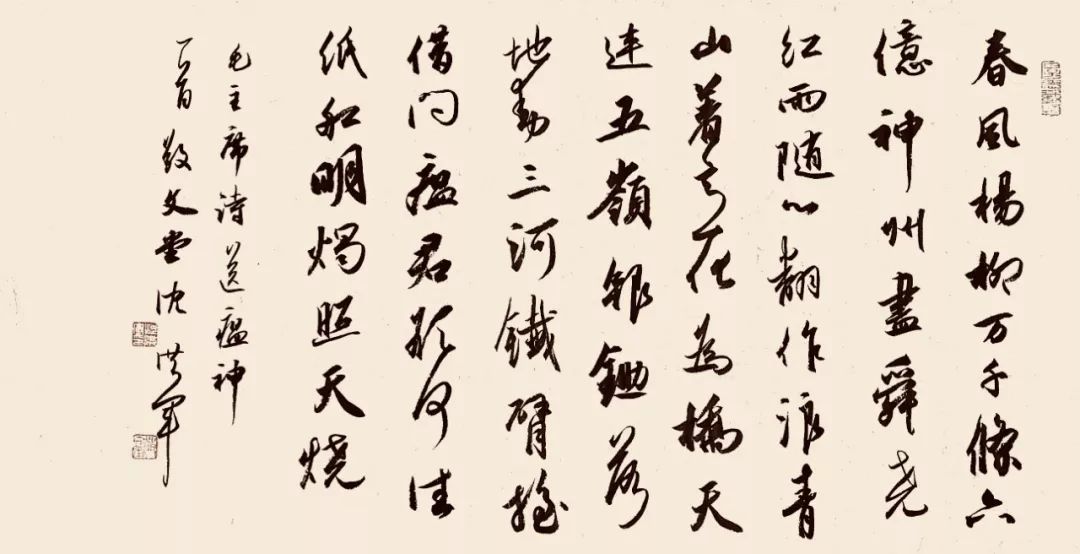 春風楊柳万千條六
億神州盡舜尧
红雨随心翻作浪青
山着意化為橋天
連五嶺銀鋤落
地動三河鐵臂摇
借问瘟君欲何往
纸船明燭照天烧
毛主席诗送瘟神
一首 敬文堂 沈洪軍